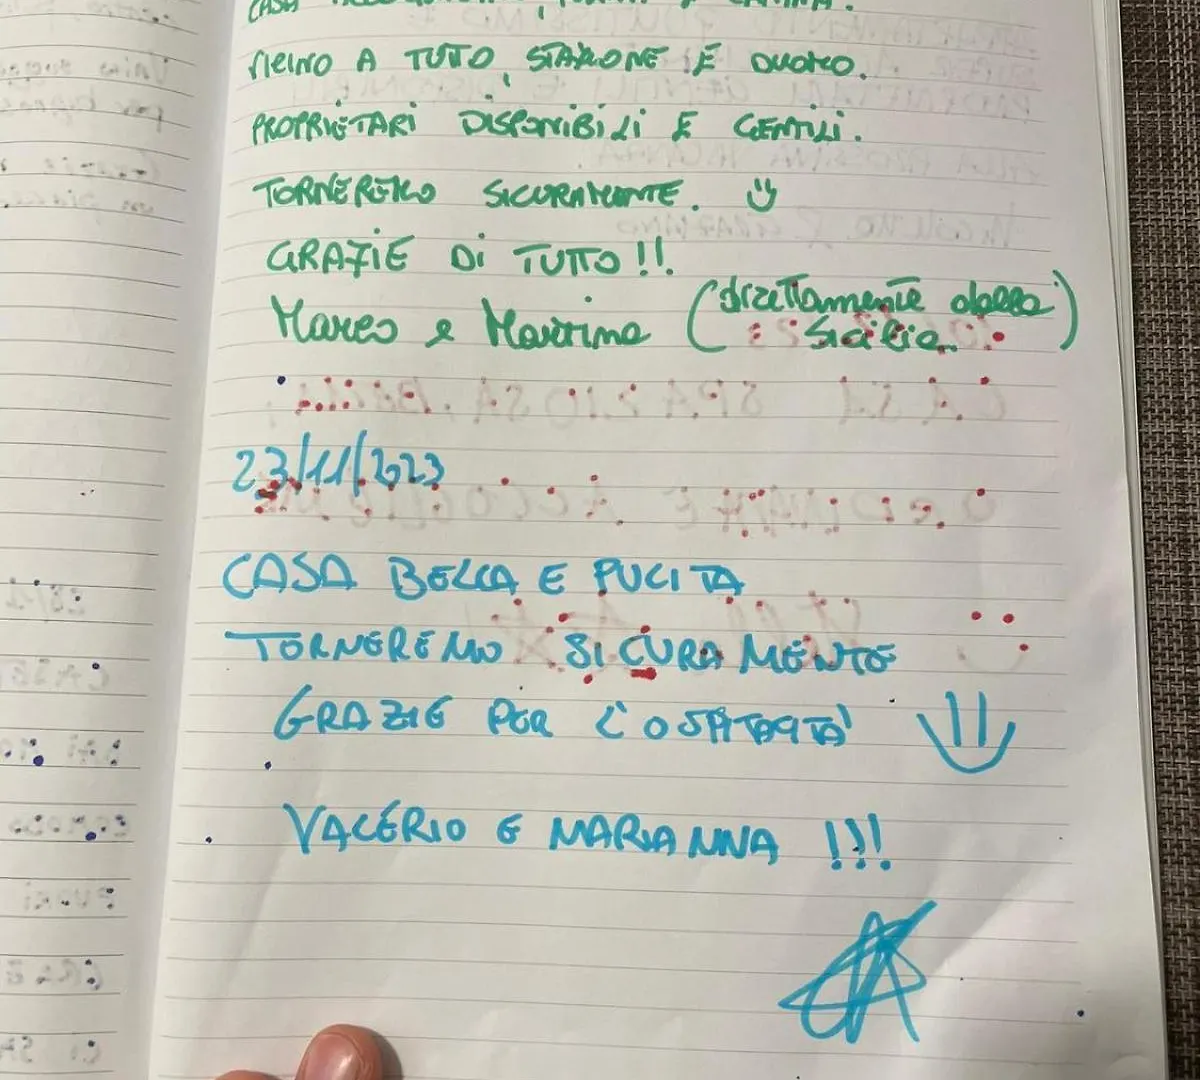 CASA
VICINO A TUTTO, STAZIONE E DUOMO.
PROPRIETARI DISPONIBILI E GENTILI.
TORNEREMO SICURAMENTE.
GRAZIE DI TUTTO!!
Marco e Martina (direttamente dalla
Sicilia)
23/11/2023
CASA BELLA E PULITA
TORNEREMO SICURAMENTE
GRAZIE PER L'OSPITALITÀ
VALERIO E MARIANNA !!!